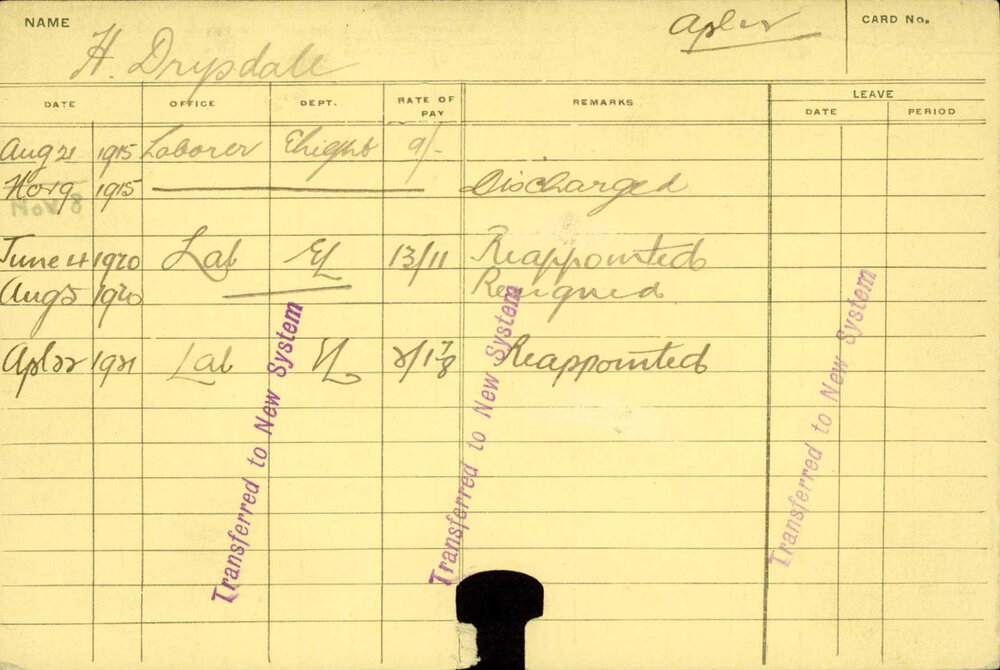 NAME
H. Drysdale
CARD No.
DATE OFFICE DEPT. RATE OF PAY REMARKS LEAVE
DATE PERIOD
Aug 21 1915 Laborer Elight 9/-
1915 Discharged
Nov 8
June 4 1920 Lab EL 13/11 Reappointed
Aug 5 1920 Resigned
Apl 22 1921 Lab EL Reappointed
Transferred to New System
Transferred to New System
Transferred to New System